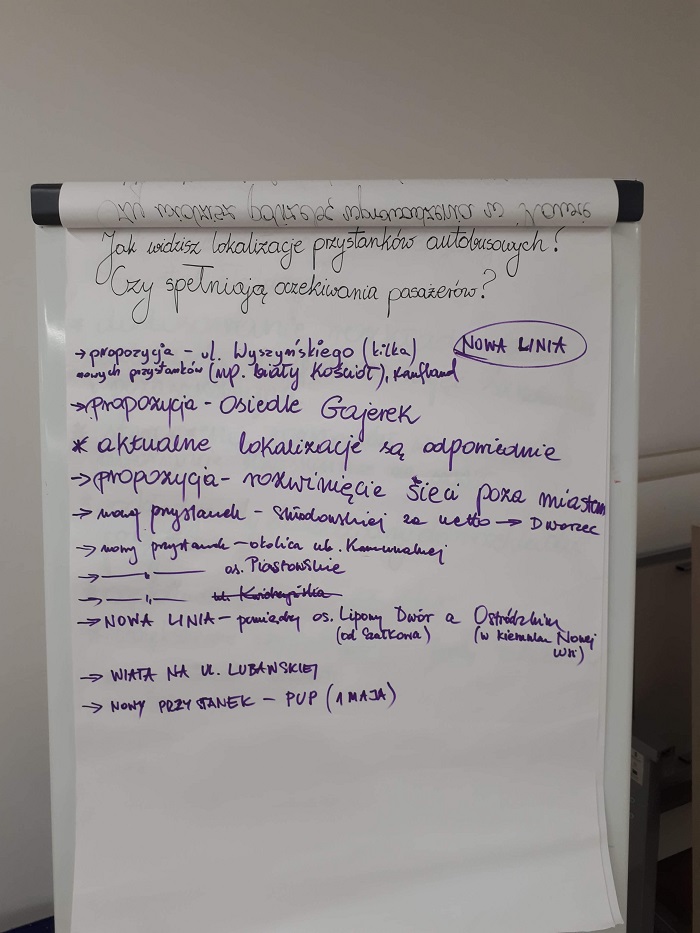 Jak widzisz lokalizacje przystanków autobusowych?
Czy spełniają oczekiwania pasażerów?
NOWA LINIA
→ propozycja – ul. Wyszyńskiego (kilka)
nowych przystanków (np. biały Kościół), Kaufland
→ propozycja – Osiedle Gajerek
* aktualne lokalizacje są odpowiednie
→ propozycja – rozwinięcie sieci poza miastem
→ nowy przystanek – Skłodowskiej za netto → Dworzec
→ nowy przystanek – okolica ul. Komunalnej
→ —— " —— os. Piastowskie
→ —— " —— ul.
→ NOWA LINIA – pomiędzy os. Lipowy Dwór a Ostródzkim
(od Szałkowa) (w kierunku Nowej
Wsi)
→ WIATA NA UL. LUBAWSKIEJ
→ NOWY PRZYSTANEK – PUP (1 MAJA)